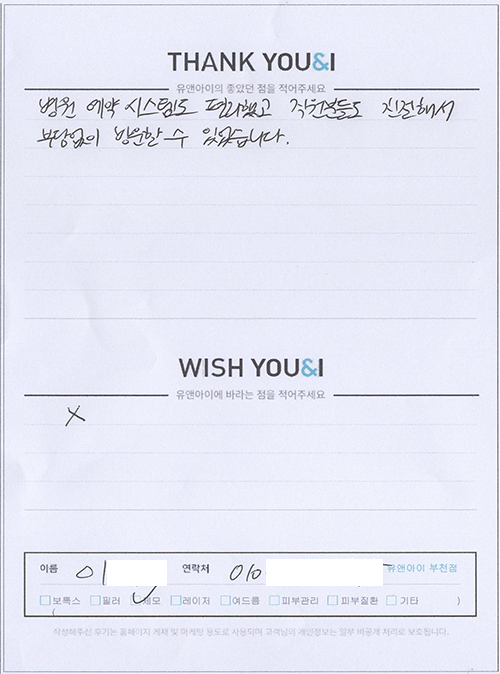 THANK YOU&I
유앤아이의 좋았던 점을 적어주세요
병원 예약 시스템도 편리했고 직원분들도 친절해서
부담없이 방문할 수 있었습니다.
WISH YOU&I
유앤아이에 바라는 점을 적어주세요
X
이름 이 연락처 010 유앤아이 부천점
보톡스 필러 제모 레이저 여드름 피부관리 피부질환 기타 )
(
작성해주신 후기는 홈페이지 게재 및 마케팅 용도로 사용되며 고객님의 개인정보는 일부 비공개 처리로 보호됩니다.